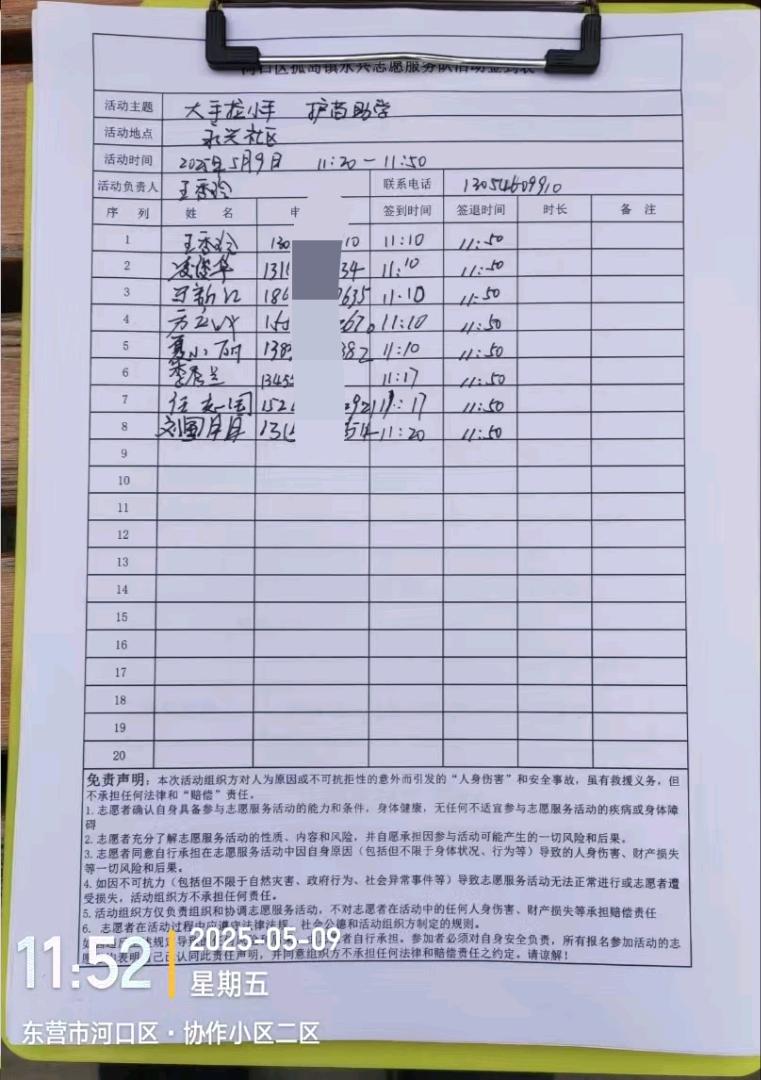 河口区孤岛镇永兴志愿服务队活动签到表
活动主题 大手拉小手 护苗助学
活动地点 永兴社区
活动时间 2025年5月9日 11:20-11:50
活动负责人 王香玲 联系电话 13054609910
序 列 姓 名 签到时间 签退时间 时长 备 注
1 王香玲 130 10 11:10 11:50
2 131 34 11:10 11:50
3 186 635 11:10 11:50
4 11:10 11:50
5 夏小丽 138 382 11:10 11:50
6 李秀兰 1345 11:17 11:50
7 任志国 152 11:17 11:50
8 刘国月 131 11:20 11:50
9
10
11
12
13
14
15
16
17
18
19
20
免责声明：本次活动组织方对人为原因或不可抗拒性的意外而引发的“人身伤害”和安全事故，虽有救援义务，但
不承担任何法律和“赔偿”责任。
1.志愿者确认自身具备参与志愿服务活动的能力和条件，身体健康，无任何不适宜参与志愿服务活动的疾病或身体障
碍
2.志愿者充分了解志愿服务活动的性质、内容和风险，并自愿承担因参与活动可能产生的一切风险和后果。
3.志愿者同意自行承担在志愿服务活动中因自身原因（包括但不限于身体状况、行为等）导致的人身伤害、财产损失
等一切风险和后果。
4.如因不可抗力（包括但不限于自然灾害、政府行为、社会异常事件等）导致志愿服务活动无法正常进行或志愿者遭
受损失，活动组织方不承担任何责任。
5.活动组织方仅负责组织和协调志愿服务活动，不对志愿者在活动中的任何人身伤害、财产损失等承担赔偿责任
6. 志愿者在活动过程中应遵守法律法规、社会公德和活动组织方制定的规则。
者自行承担。参加者必须对自身安全负责，所有报名参加活动的志
表明 已认同此责任声明，并同意组织方不承担任何法律和赔偿责任之约定。请谅解！
11:52 2025-05-09
星期五
东营市河口区·协作小区二区